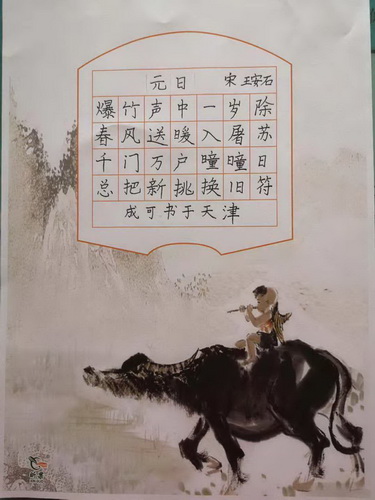 元日 宋 王安石
爆竹声中一岁除
春风送暖入屠苏
千门万户曈曈日
总把新挑换旧符
成可书于天津